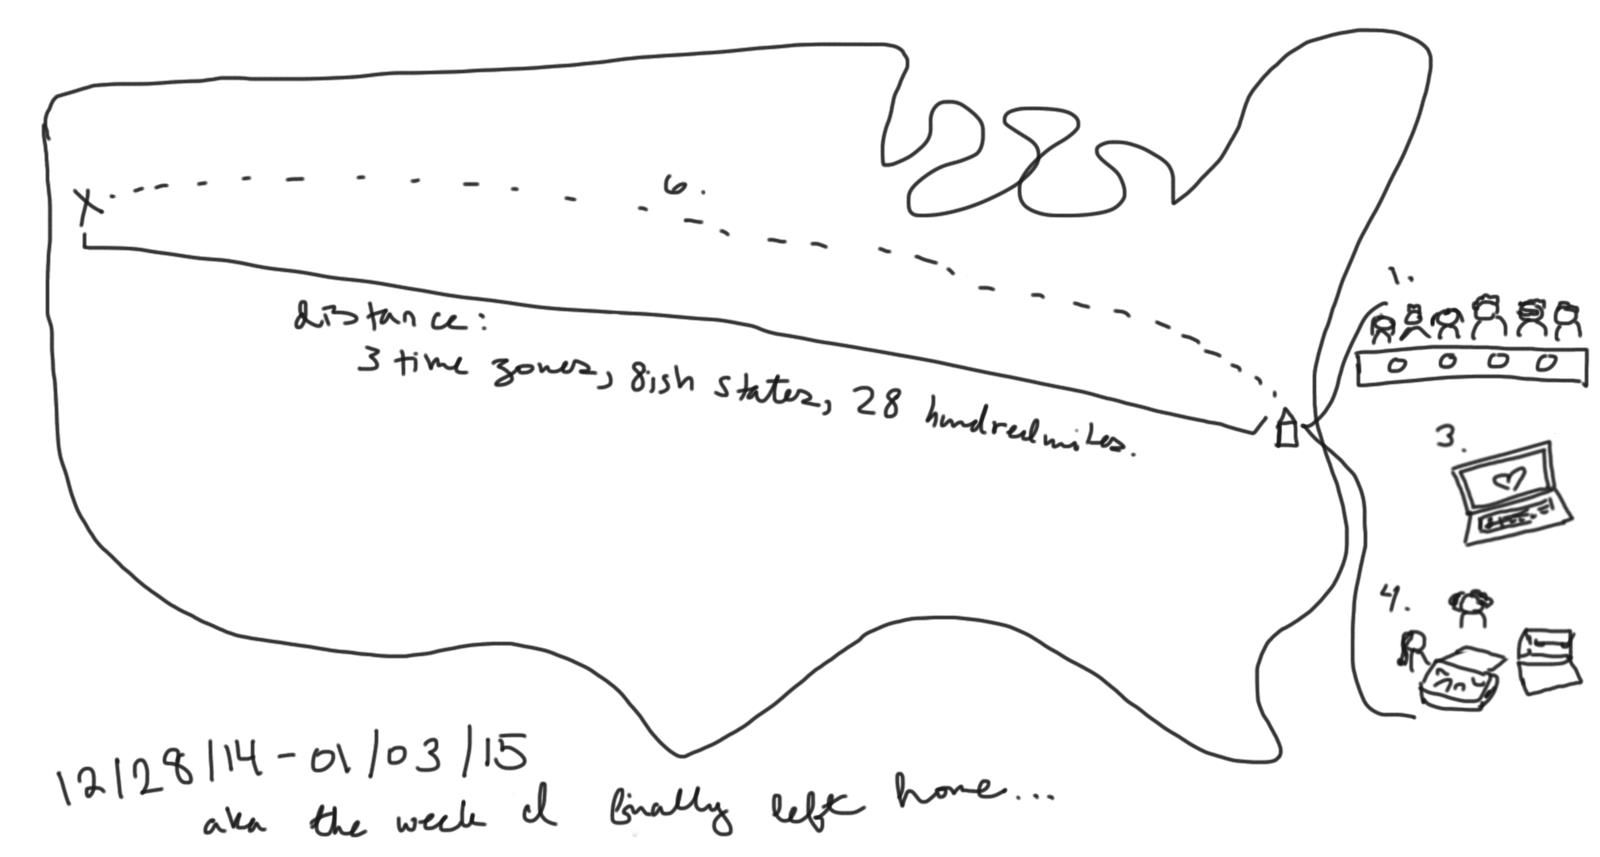 6.
1.
distance:
3 time zones, 8ish states, 28 hundred miles.
3.
4.
12/28/14 - 01/03/15
aka the week I finally left home...